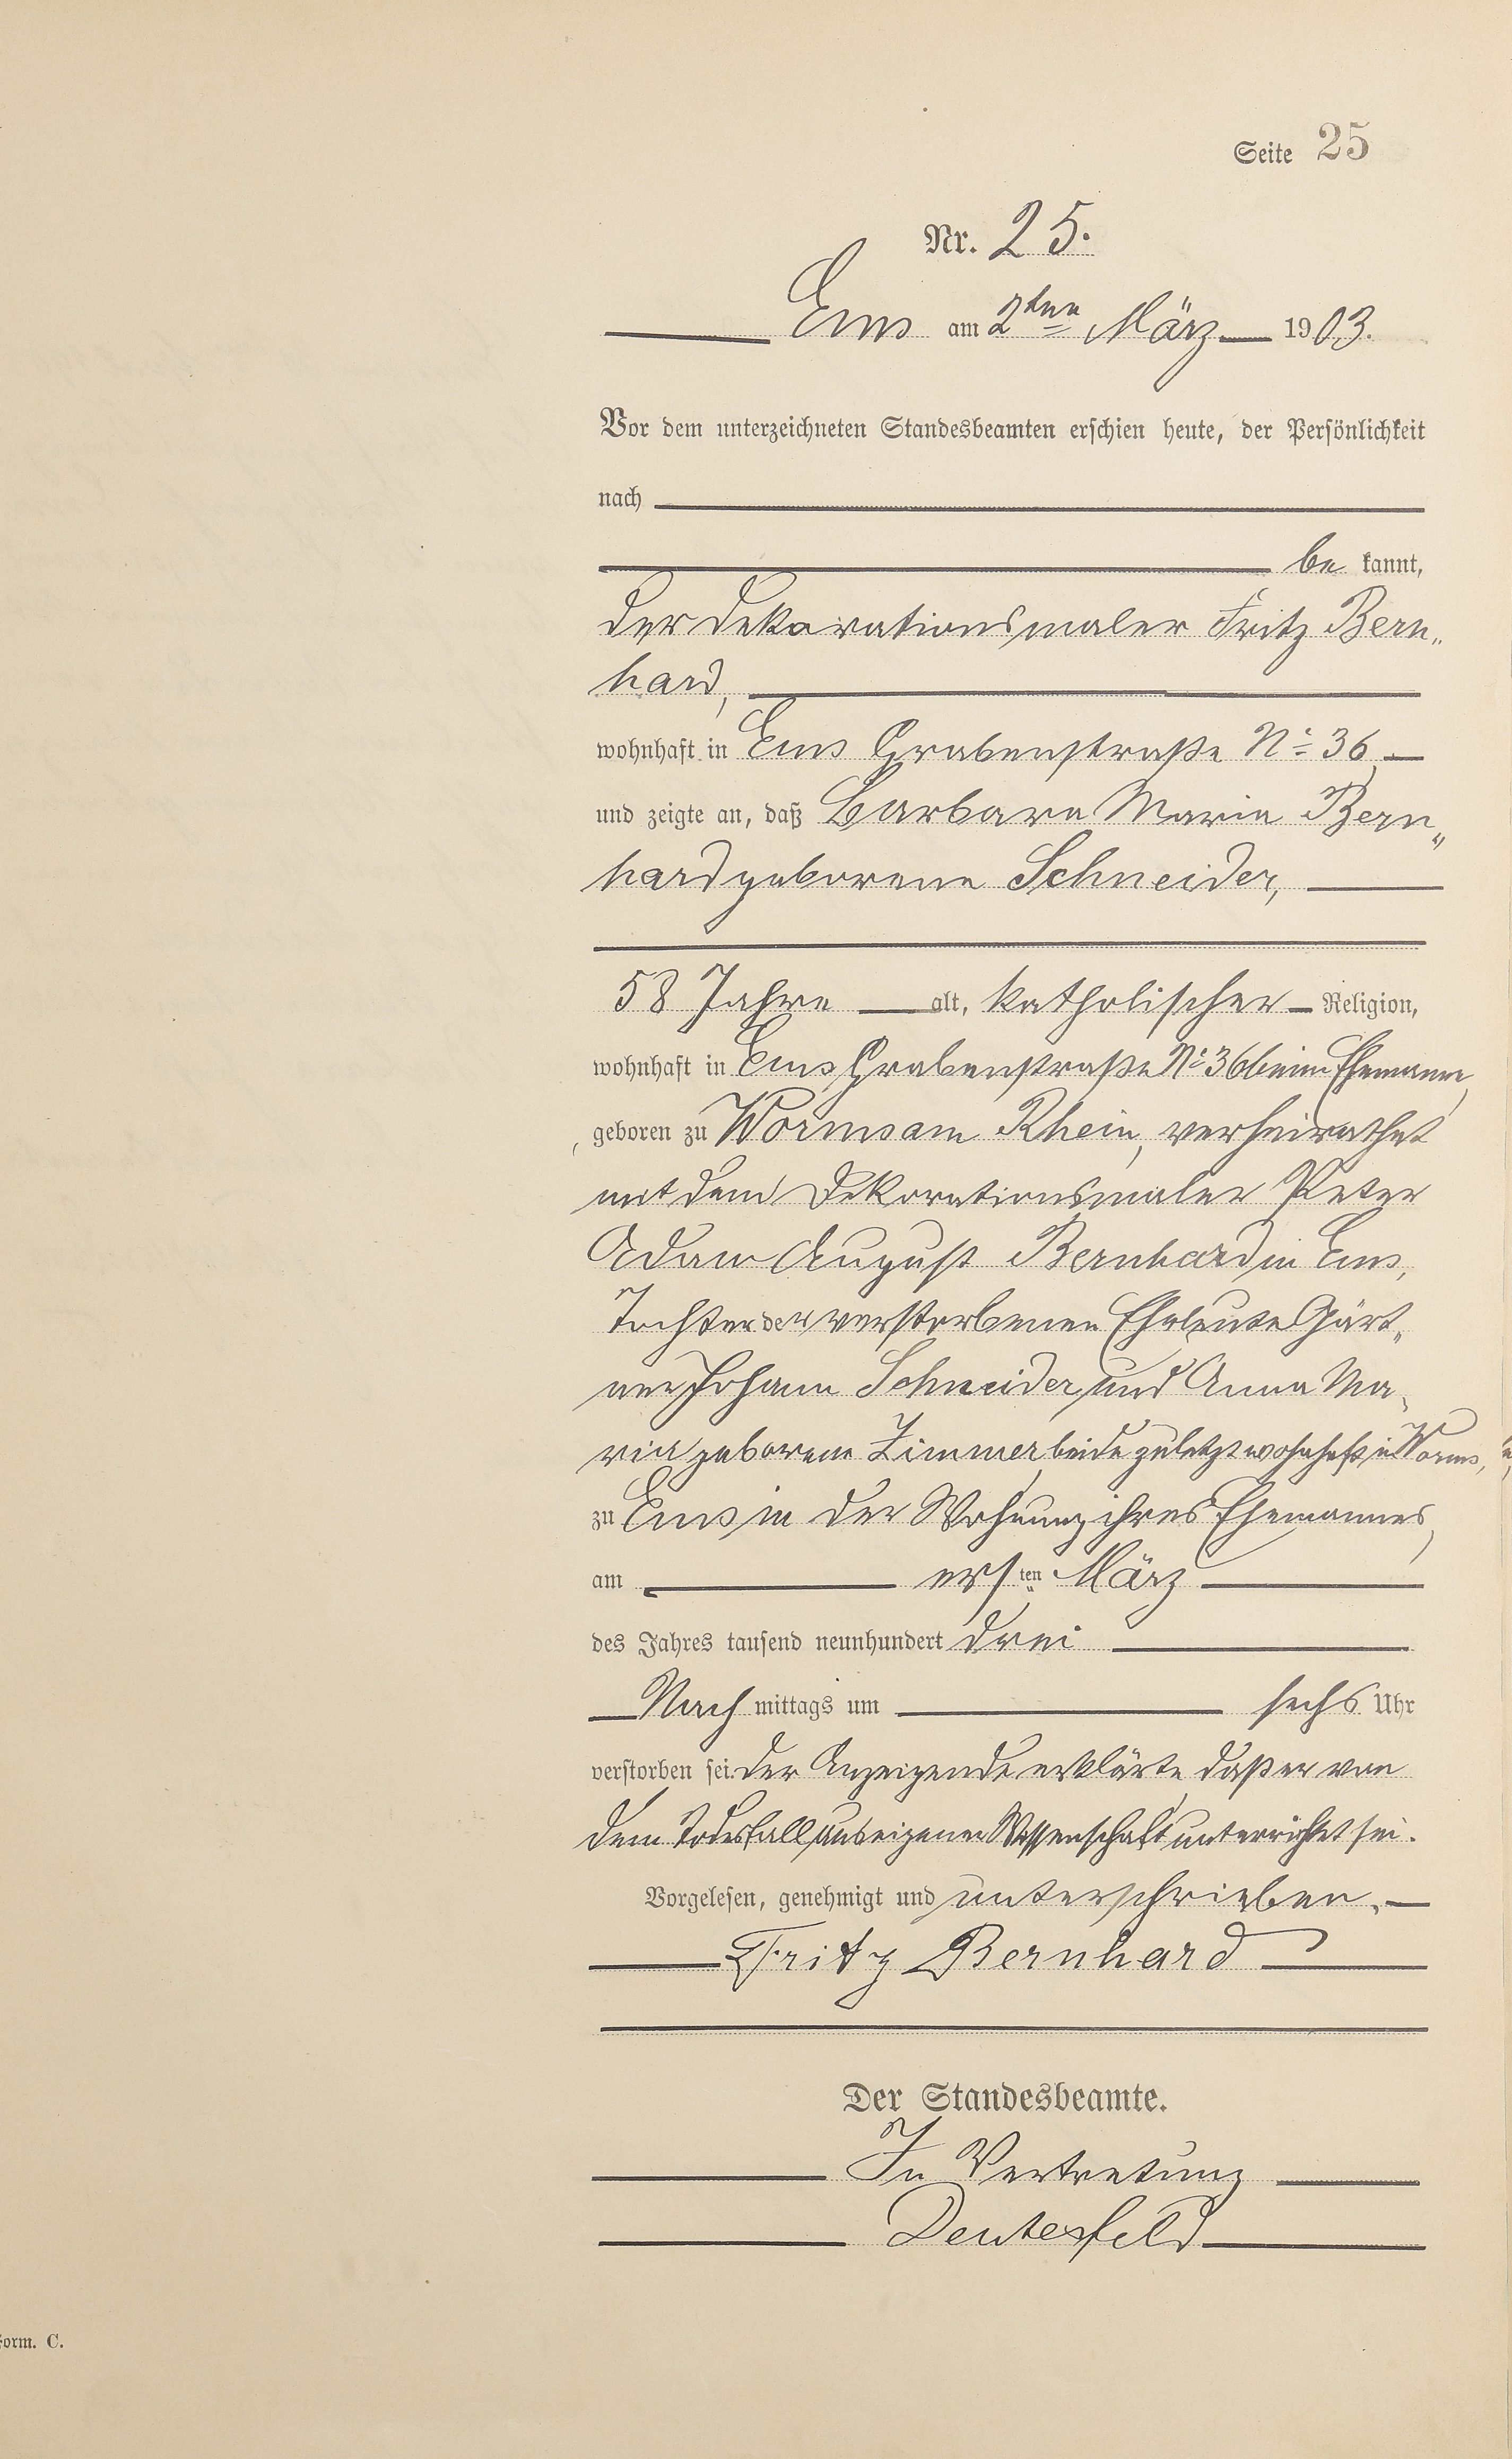 Seite 25
Nr. 25.
Ems am 2ten März 1903.
Vor dem unterzeichneten Standesbeamten erschien heute, der Persönlichkeit
nach
be kannt,
der Dekorationsmaler Fritz Bern„
hard,
wohnhaft in Ems Grabenstraße No 36,
und zeigte an, daß Barbara Maria Bern„
hard geborene Schneider,
58 Jahre alt, katholischer Religion,
wohnhaft in Ems Grabenstraße No 36 beim Ehemanne,
geboren zu Worms am Rhein, verheirathet
mit dem Dekorationsmaler Peter
Adam August Bernhard in Ems,
Tochter der verstorbenen Eheleute Gärt„
ner Johann Schneider und Anna Ma„
ria geborene Zimmer, beide zuletzt wohnhaft in Worms,
zu Ems in der Wohnung ihres Ehemannes,
am ersten März
des Jahres tausend neunhundert drei
Nach mittags um sechs Uhr
verstorben sei. Der Anzeigende erklärte, daß er von
dem Todesfall aus eigener Wissenschaft unterrichtet sei.
Vorgelesen, genehmigt und unterschrieben.
Fritz Bernhard
Der Standesbeamte.
In Vertretung
Deutesfeld
Form. C.